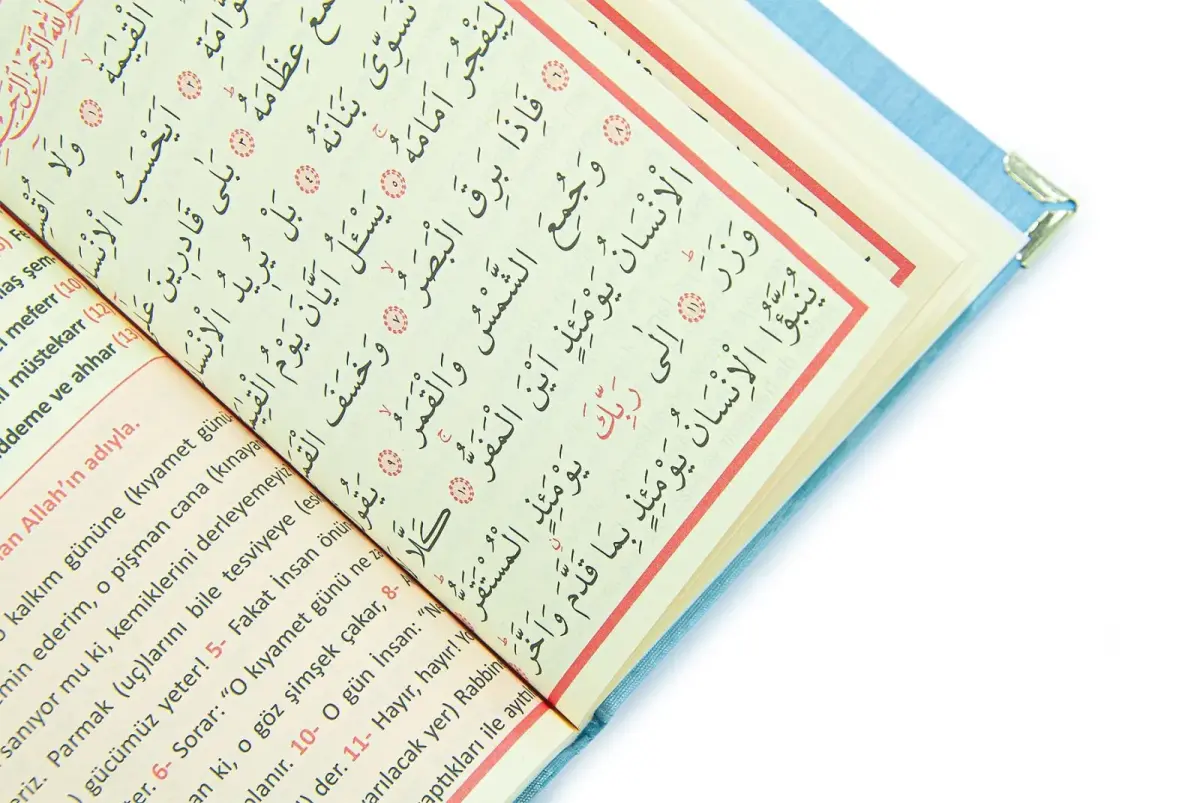 الله الرحمن الرحيم
الْقِيٰمَةِ ١ وَلَا
اَيَحْسَبُ ٢
عِظَامَهُ ٣ بَلٰى قَادِرِينَ
نُسَوِّىَ بَنَانَهُ ٤ بَلْ يُرِيدُ الْاِنْسَا
لِيَفْجُرَ اَمَامَهُ ٥ يَسْـَٔلُ اَيَّانَ يَوْمُ
٦ فَاِذَا بَرِقَ الْبَصَرُ ٧ وَخَسَفَ
٨ وَجُمِعَ الشَّمْسُ وَالْقَمَرُ ٩ يَقُو
الْاِنْسَانُ يَوْمَئِذٍ اَيْنَ الْمَفَرُّ ١٠ كَلَّا
وَزَرَ ١١ اِلٰى رَبِّكَ يَوْمَئِذٍ الْمُسْتَقَرُّ
يُنَبَّؤُا الْاِنْسَانُ يَوْمَئِذٍ بِمَا قَدَّمَ وَاَخَّرَ
maş şem
el meferr (10)
müstekarr (12)
ddeme ve ahhar (13)
an Allah’ın adıyla.
o kalkım gününe (kıyamet günü
emin ederim, o pişman cana (kınaya
sanıyor mu ki, kemiklerini derleyemeyiz
eriz. Parmak (uç)larını bile tesviyeye (es
) gücümüz yeter! 5- Fakat İnsan önün
ter. 6- Sorar: “O kıyamet günü ne za
an ki, o göz şimşek çakar, 8-
planır. 10- O gün İnsan: “Ne
) der. 11- Hayır, hayır!
varılacak yer) Rabbin
yaptıkları ile ayıtıl